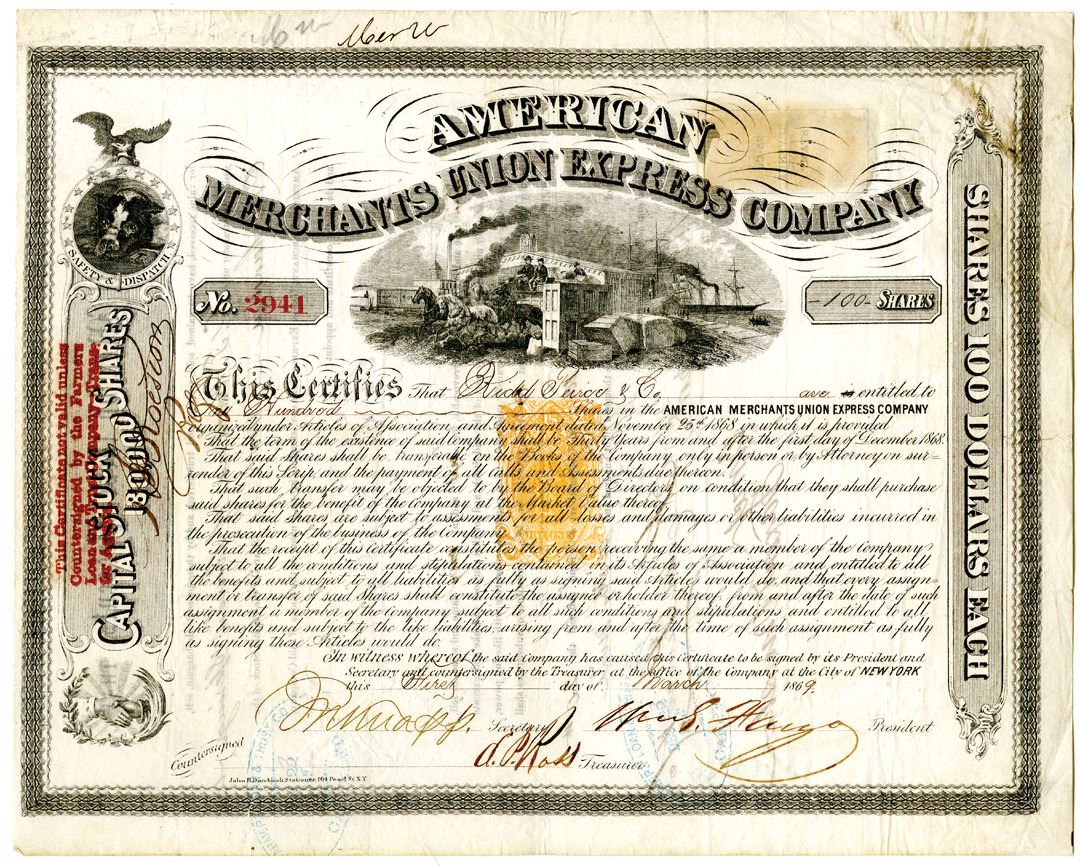 AMERICAN
MERCHANTS UNION EXPRESS COMPANY
SAFETY & DISPATCH
No. 2941
100 SHARES
This Certifies That Kidd Peirce & Co. are entitled to
One Hundred Shares in the AMERICAN MERCHANTS UNION EXPRESS COMPANY
organized under Articles of Association and Agreement dated November 25th 1868 in which it is provided
That the term of the existence of said Company shall be Thirty Years from and after the first day of December 1868.
That said Shares shall be transferable on the Books of the Company only in person or by Attorney on sur=
render of this Scrip and the payment of all calls and Assessments due thereon.
That such transfer may be objected to by the Board of Directors on condition that they shall purchase
said shares for the benefit of the Company at the Market Value thereof
That said Shares are subject to assessments for all losses and damages or other liabilities incurred in
the prosecution of the business of the Company.
That the receipt of this Certificate constitutes the person receiving the same a member of the Company
subject to all the conditions and stipulations contained in its Articles of Association and entitled to all
the benefits and subject to all liabilities as fully as signing said Articles would do, and that every assign=
ment or transfer of said Shares shall constitute the assignee or holder thereof, from and after the date of such
assignment a member of the Company subject to all such conditions and stipulations and entitled to all
like benefits and subject to the like liabilities, arising from and after the time of such assignment as fully
as signing these Articles would do.
In witness whereof the said Company has caused this Certificate to be signed by its President and
Secretary and countersigned by the Treasurer at the office of the Company at the City of NEW YORK
this First day of March 1869.
J. N. Knapp. Secretary Wm. G. Fargo President
Countersigned A. P. Ross Treasurer
CAPITAL STOCK 180,000 SHARES
This Certificate not valid unless
Countersigned by the Farmers
Loan and Trust Company, Trans-
fer Agents
SHARES 100 DOLLARS EACH